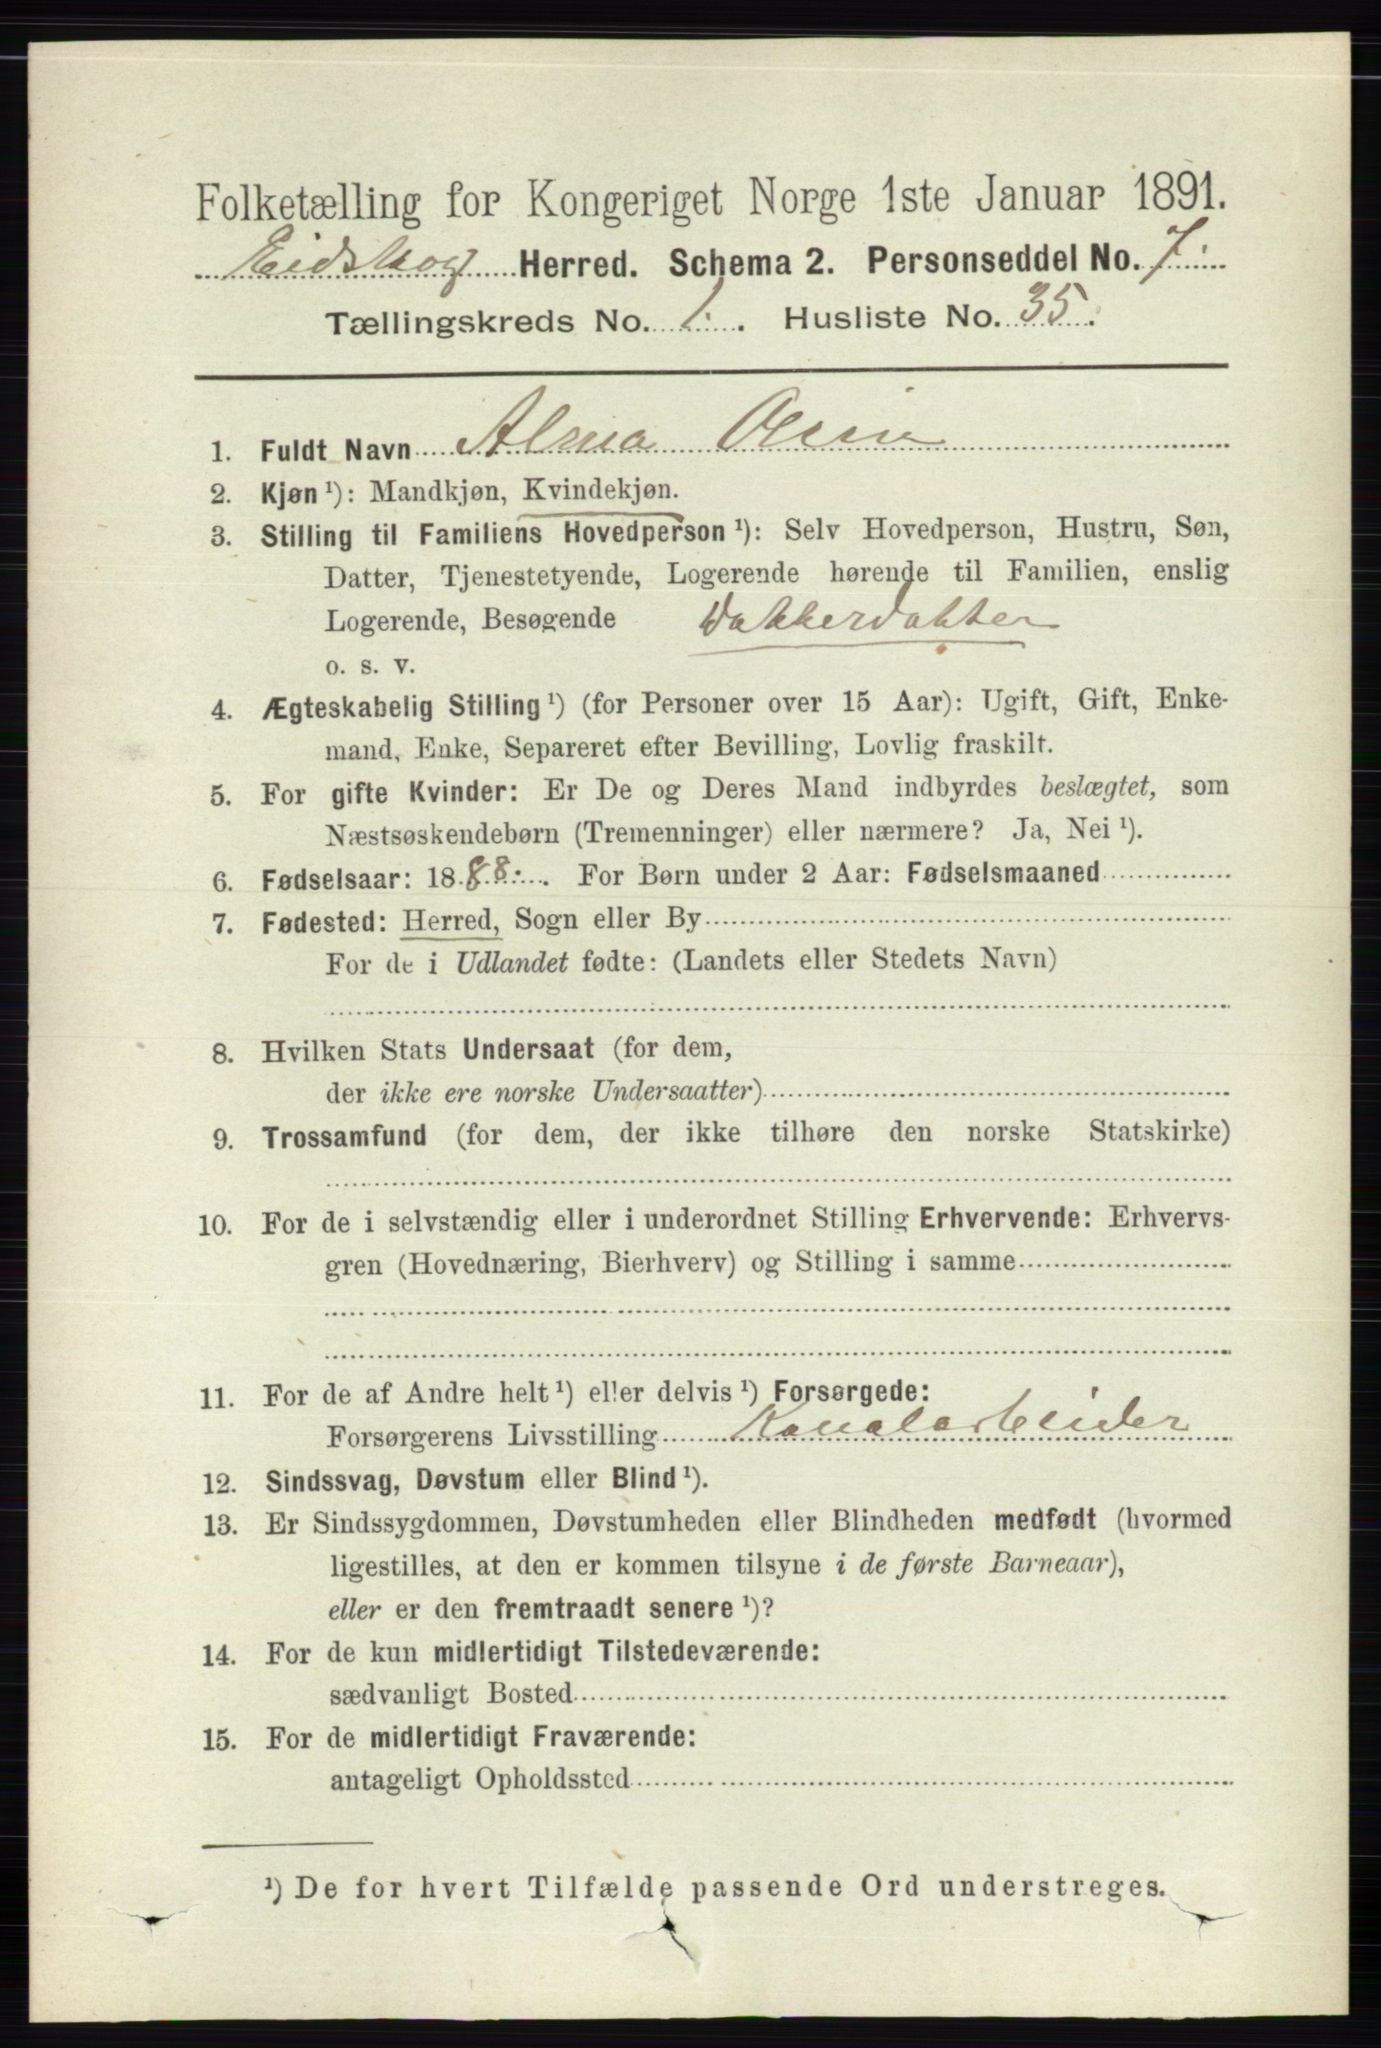 Folketælling for Kongeriget Norge 1ste Januar 1891.
Eidskog Herred. Schema 2. Personseddel No. 7.
Tællingskreds No. 1. Husliste No. 35.
1. Fuldt Navn Alma
2. Kjøn ¹): Mandkjøn, Kvindekjøn.
3. Stilling til Familiens Hovedperson ¹): Selv Hovedperson, Hustru, Søn,
Datter, Tjenestetyende, Logerende hørende til Familien, enslig
Logerende, Besøgende Datterdatter
o. s. v.
4. Ægteskabelig Stilling ¹) (for Personer over 15 Aar): Ugift, Gift, Enke-
mand, Enke, Separeret efter Bevilling, Lovlig fraskilt.
5. For gifte Kvinder: Er De og Deres Mand indbyrdes beslægtet, som
Næstsøskendebørn (Tremenninger) eller nærmere? Ja, Nei ¹).
6. Fødselsaar: 1888. For Børn under 2 Aar: Fødselsmaaned
7. Fødested: Herred, Sogn eller By
For de i Udlandet fødte: (Landets eller Stedets Navn)
8. Hvilken Stats Undersaat (for dem,
der ikke ere norske Undersaatter)
9. Trossamfund (for dem, der ikke tilhøre den norske Statskirke)
10. For de i selvstændig eller i underordnet Stilling Erhvervende: Erhvervs-
gren (Hovednæring, Bierhverv) og Stilling i samme
11. For de af Andre helt ¹) eller delvis ¹) Forsørgede:
Forsørgerens Livsstilling Kanalarbeider
12. Sindssvag, Døvstum eller Blind ¹).
13. Er Sindssygdommen, Døvstumheden eller Blindheden medfødt (hvormed
ligestilles, at den er kommen tilsyne i de første Barneaar),
eller er den fremtraadt senere ¹)?
14. For de kun midlertidigt Tilstedeværende:
sædvanligt Bosted
15. For de midlertidigt Fraværende:
antageligt Opholdssted
¹) De for hvert Tilfælde passende Ord understreges.